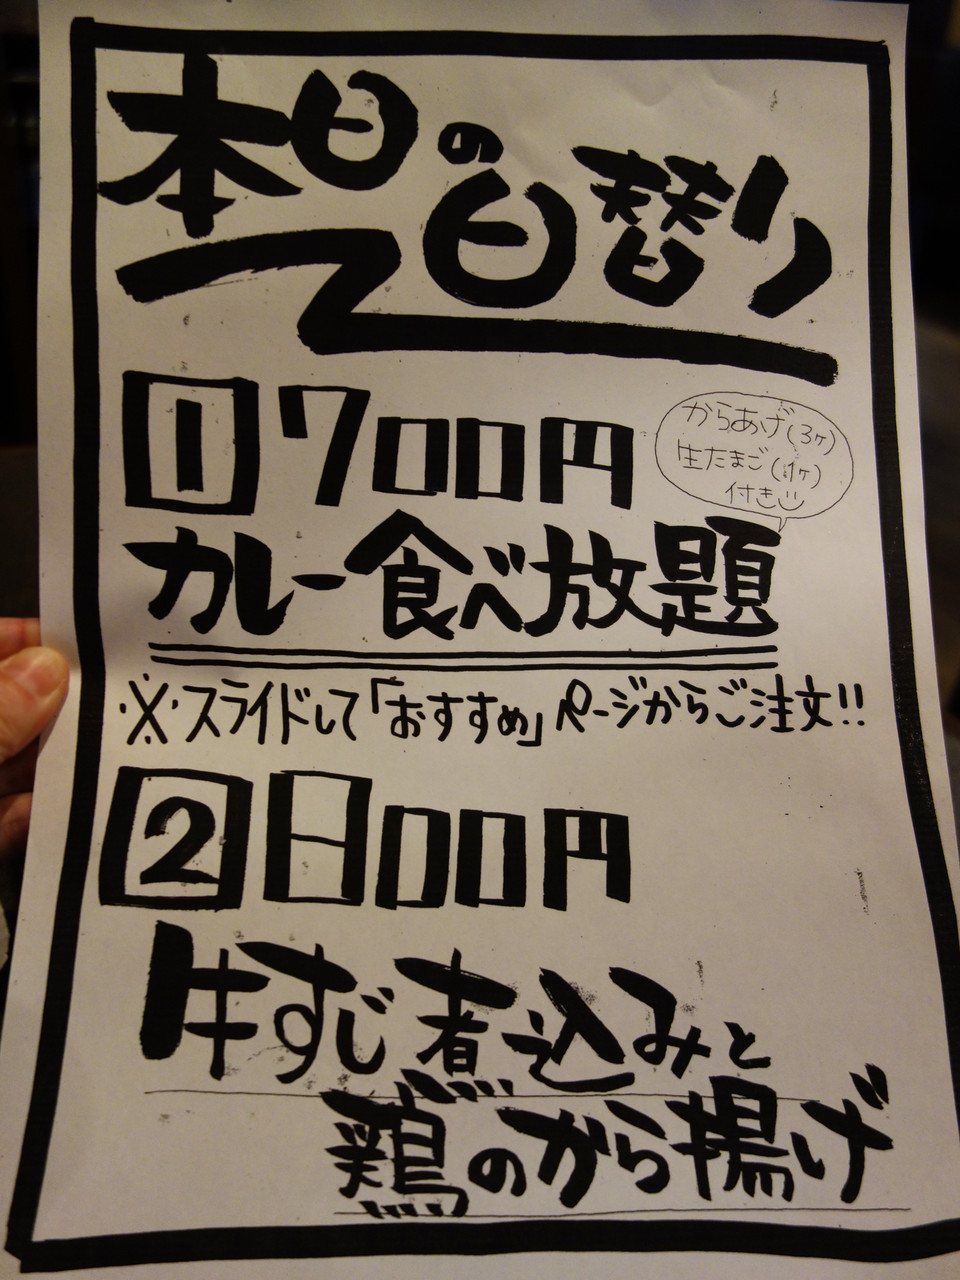 本日の日替り
1 700円
からあげ(3ケ)
生たまご(1ケ)
付き
カレー食べ放題
※スライドして「おすすめ」ページからご注文!!
2 800円
牛すじ煮込みと
鶏のから揚げ